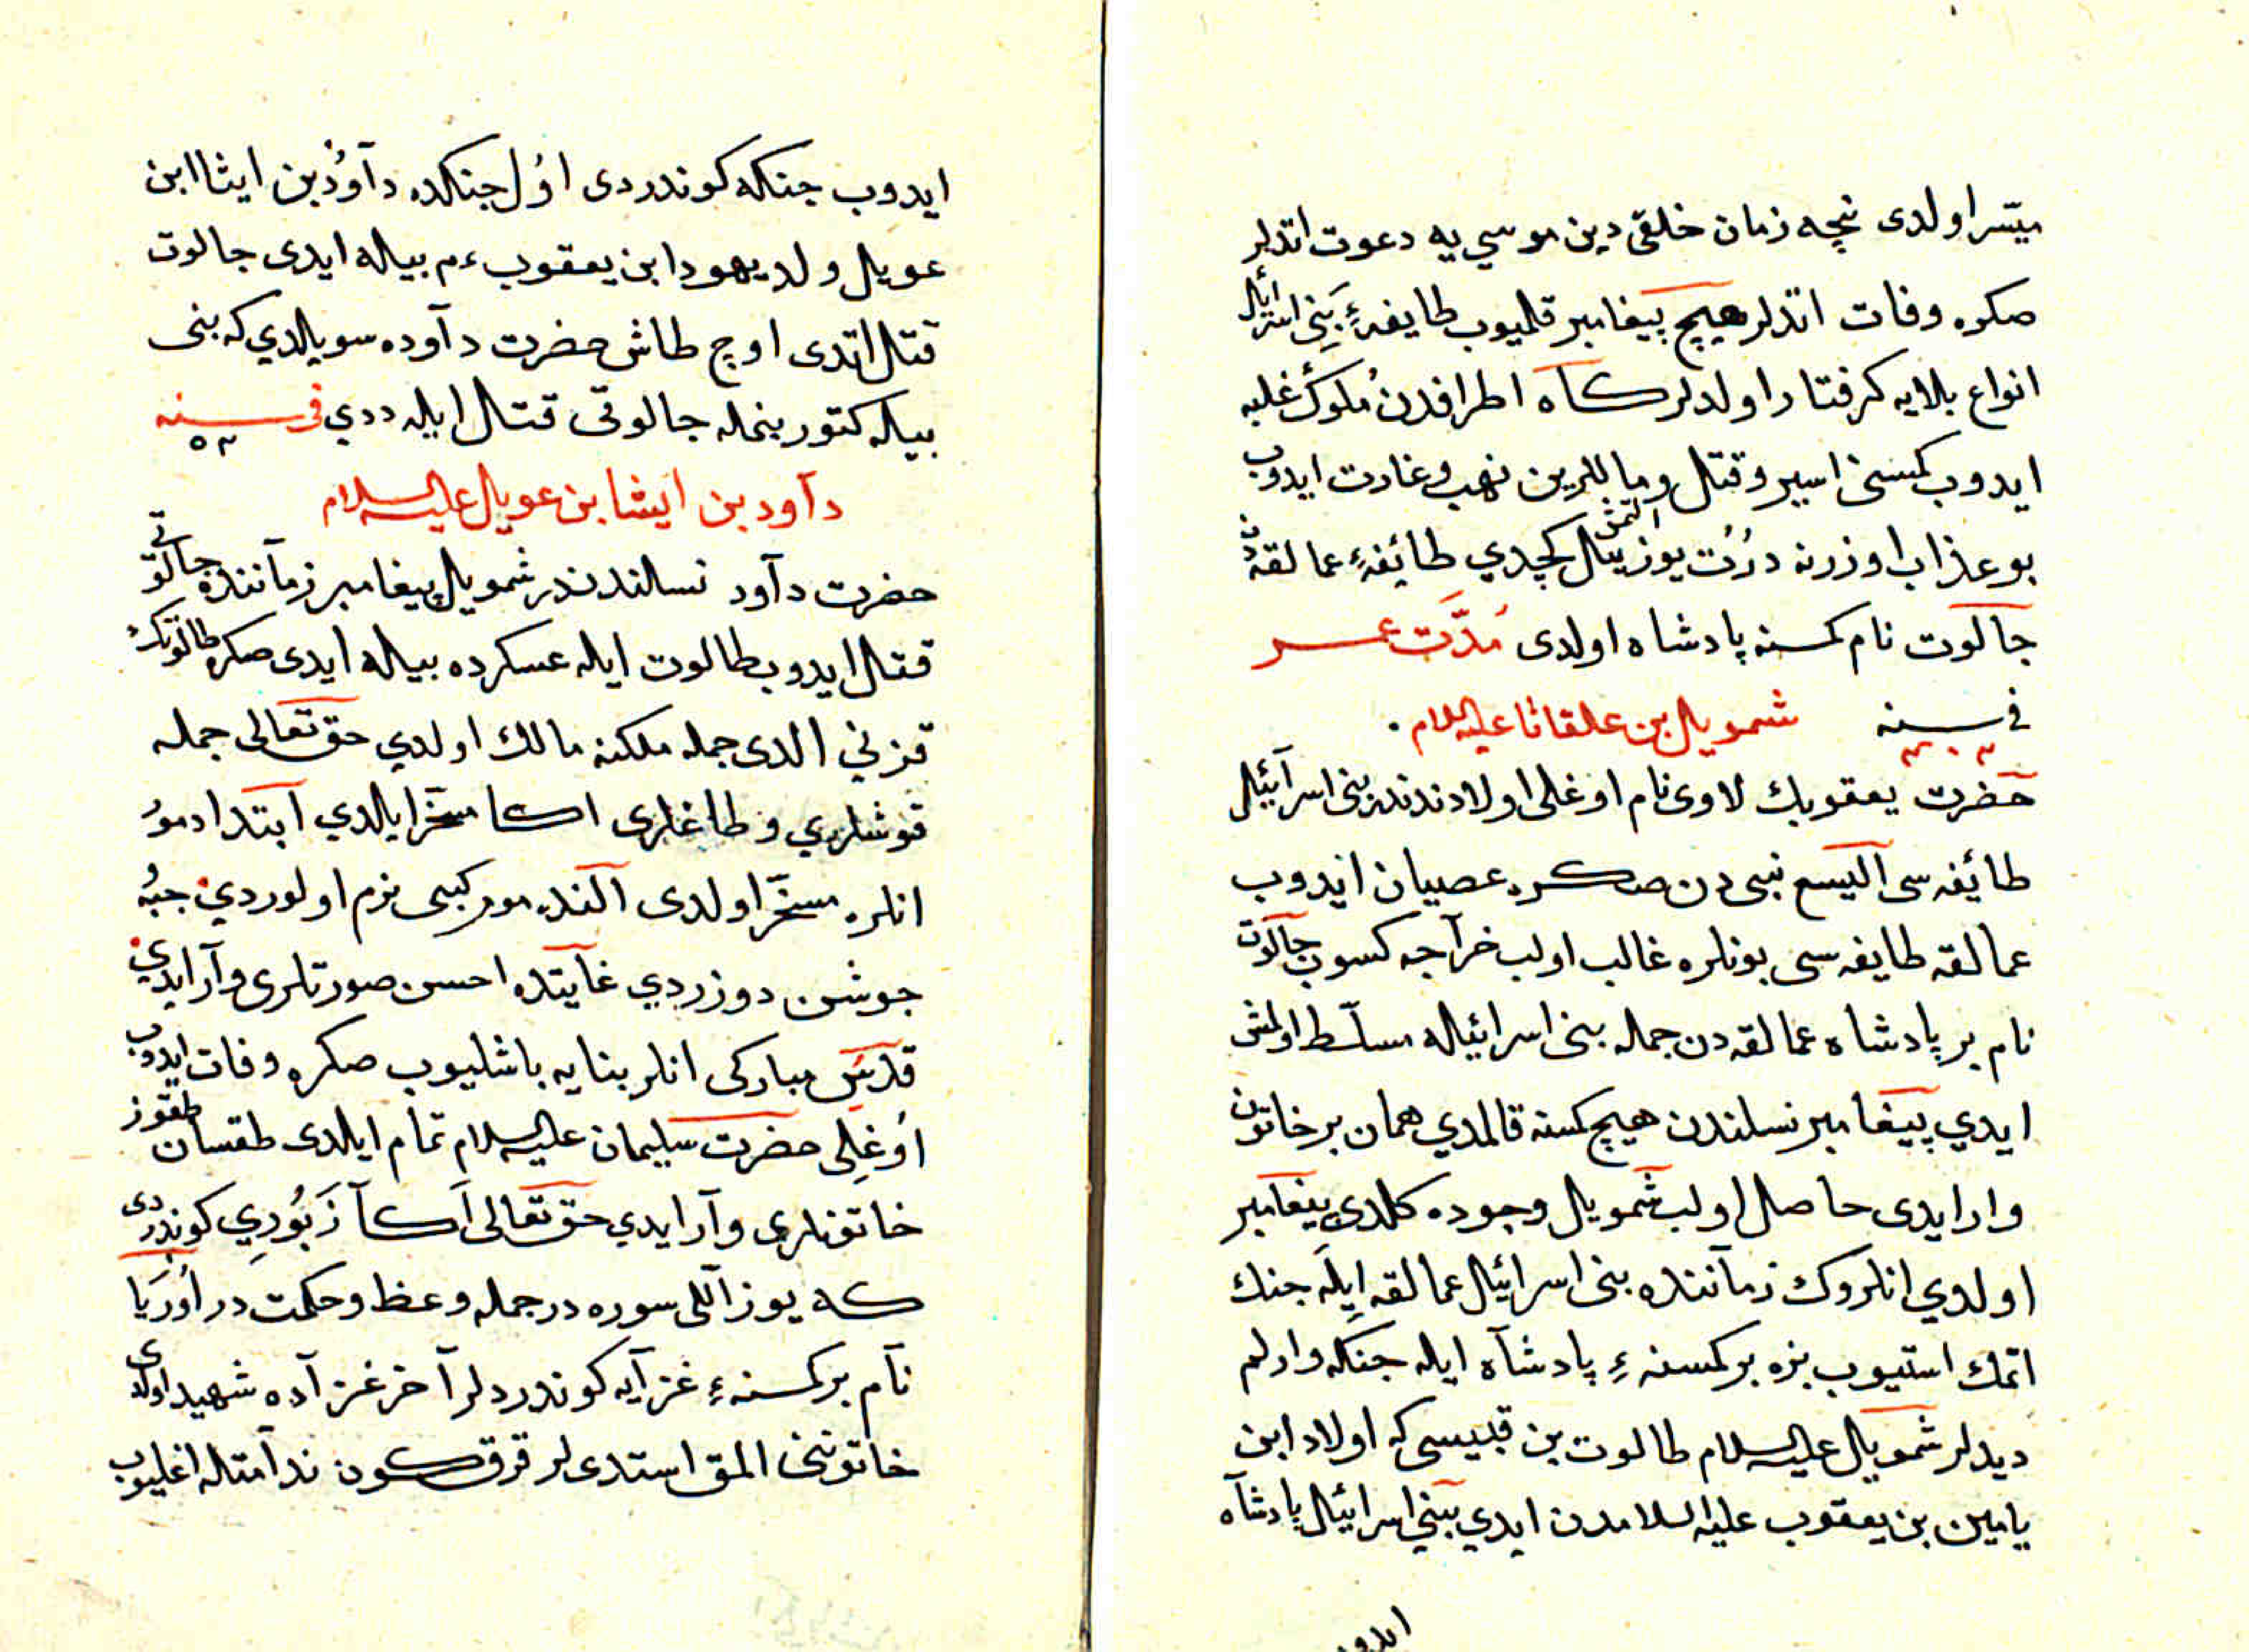 میسر اولدی نیچه زمان خلقی دین موسی یه دعوت اتدلر
صکره وفات اتدلر هیچ پیغامبر قلمیوب طایفهٔ بنی اسرائیل
انواع بلایه کرفتار اولدلر کاه اطرافدن ملوک غلبه
ایدوب کمسنی اسیر و قتل و ماللرین نهب و غارت ایدوب
بو عذاب اوزرنه درت یوز التمش ییل کچدی طائفهٔ عمالقه دن
جالوت نام کمسنه پادشاه اولدی مدت عمر
فی سنه شمویل بن علقاثا علیه السلام
حضرت یعقوبک لاوی نام اوغلی اولادندندر بنی اسرآئیل
طائفه سی الیسع نبی دن صکره عصیان ایدوب
عمالقه طایفه سی بونلره غالب اولب خرآجه کسوب جالوت
نام بر پادشاه عمالقه دن جمله بنی اسرائیله مسلّط اولمش
ایدی پیغامبر نسلندن هیچ کسنه قالمدی همان بر خاتون
وار ایدی حاصل اولب شمویل وجوده کلدی پیغامبر
اولدی انلروک زمآننده بنی اسرائیل عمالقه ایله جنک
اتمک استیوب بزه بر کمسنهٔ پادشآه ایله جنکه وارلم
دیدلر شمویل علیه السلام طالوت بن قیسی که اولاد ابن
یامین بن یعقوب علیه السلامدن ایدی بنی اسرائیل پادشآه
ایدوب
ایدوب جنکه کوندردی اوُل جنکده دآوُد بن ایشا ابن
عویل ولد یهودا بن یعقوب ءم بیله ایدی جالوت
قتل اتدی اوچ طاش حضرت دآوده سویلدی که بنی
بیله کتور بنمله جالوتی قتل ایله ددی فی سنه
۵۳
دآود بن ایشا بن عویل علیه السلام
حضرت دآود نسلندندر شمویل پیغامبر زمآننده جالوتی
قتل ایدوب طالوت ایله عسکرده بیله ایدی صکره طالوتک
قزنی الدی جمله ملکنه مالک اولدی حق تعالی جمله
قوشلری و طاغلری اکا مسخّر ایلدی ابتدا دموُر
انلره مسخّر اولدی النده موم کبی نرم اولوردی جبه
جوشن دوزردی غآیتده احسن صورتلری وآر ایدی
قدس مبارکی انلر بنایه باشلیوب صکره وفات ایدوب
اوُغلی حضرت سلیمان علیه السلام تمام ایلدی طقسان طقوز
خاتونلری وآر ایدی حق تعالی اکآ زَبوُری کوندردی
که یوز اللی سوره در جمله وعظ و حکمت در اوُریا
نآم بر کمسنهٔ غزآیه کوندردلر آخر غزآده شهید اولدی
خاتوننی المق استدیلر قرق کون ندآمتله اغلیوب